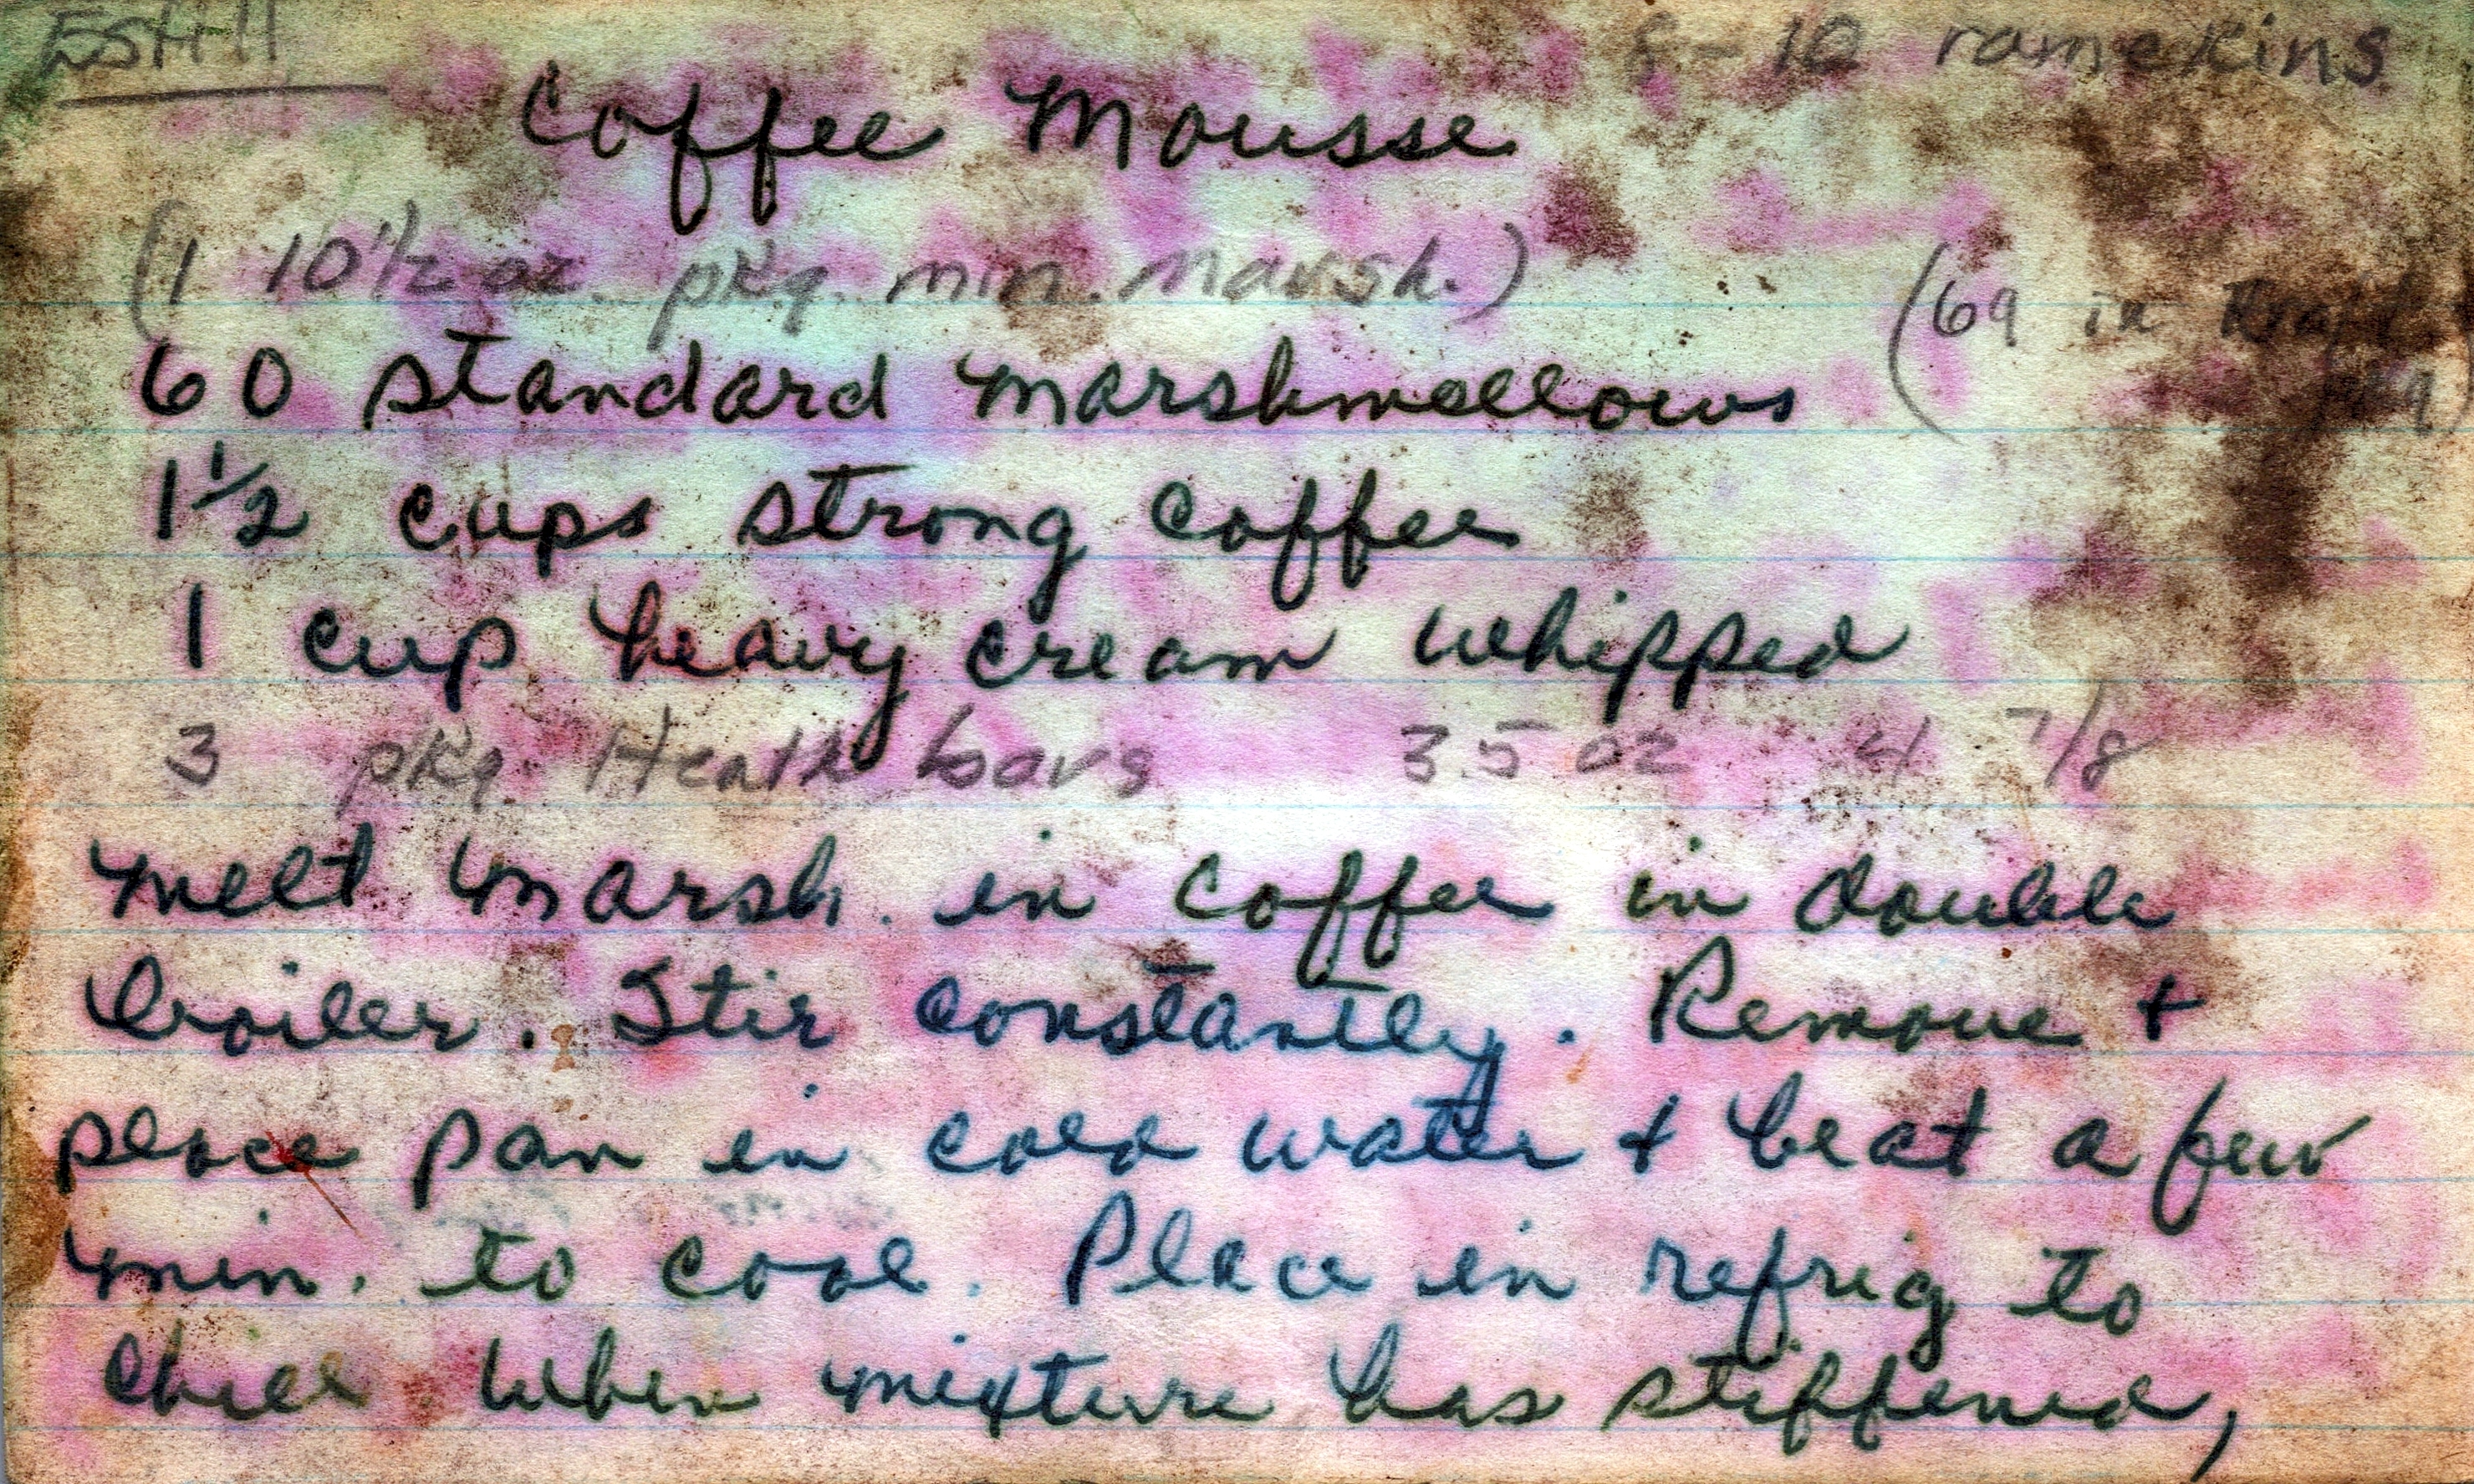 8-10 ramekins
Coffee Mousse
(1 10 1/2 oz. pkg. min. marsh.)
(69 in Kraft
pkg)
60 standard marshmallows
1 1/2 cups strong coffee
1 cup heavy cream whipped
3 pkg. Heath bars 3.5 oz 4 7/8
Melt marsh. in coffee in double
boiler. Stir constantly. Remove +
place pan in cold water + beat a few
min. to cool. Place in refrig to
chill When mixture has stiffened,